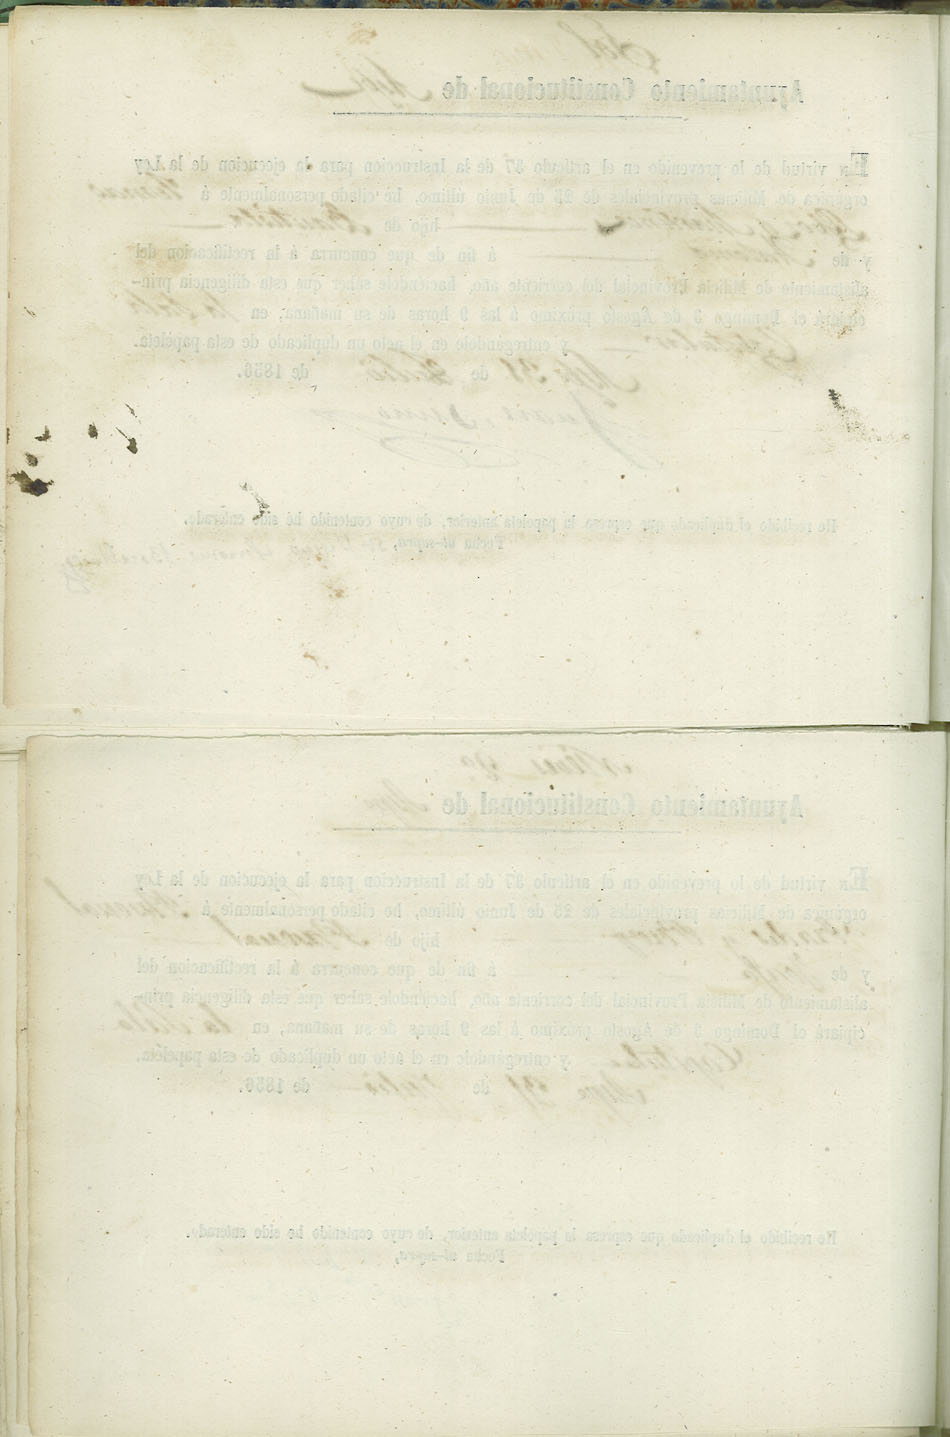 Ayuntamiento Constitucional de
EN virtud de lo prevenido en el artículo 37 de la Instruccion para la ejecucion de la Ley
orgánica de Milicias provinciales de 25 de Junio último, he citado personalmente á
hijo de Bautista
y de á fin de que concurra á la rectificacion del
alistamiento de Milicia Provincial del corriente año, haciéndole saber que esta diligencia prin-
cipiará el Domingo 3 de Agosto próximo á las 9 horas de su mañana, en la Sala
Capitular y entregándole en el acto un duplicado de esta papeleta.
31 de Julio de 1856.
He recibido el duplicado que espresa la papeleta anterior, de cuyo contenido hé sido enterado.
Fecha ut-supra,
Ayuntamiento Constitucional de
EN virtud de lo prevenido en el artículo 37 de la Instruccion para la ejecucion de la Ley
orgánica de Milicias provinciales de 25 de Junio último, he citado personalmente á
hijo de
y de á fin de que concurra á la rectificacion del
alistamiento de Milicia Provincial del corriente año, haciéndole saber que esta diligencia prin-
cipiará el Domingo 3 de Agosto próximo á las 9 horas de su mañana, en la Sala
Capitular y entregándole en el acto un duplicado de esta papeleta.
31 de Julio de 1856.
He recibido el duplicado que espresa la papeleta anterior, de cuyo contenido he sido enterado.
Fecha ut-supra,